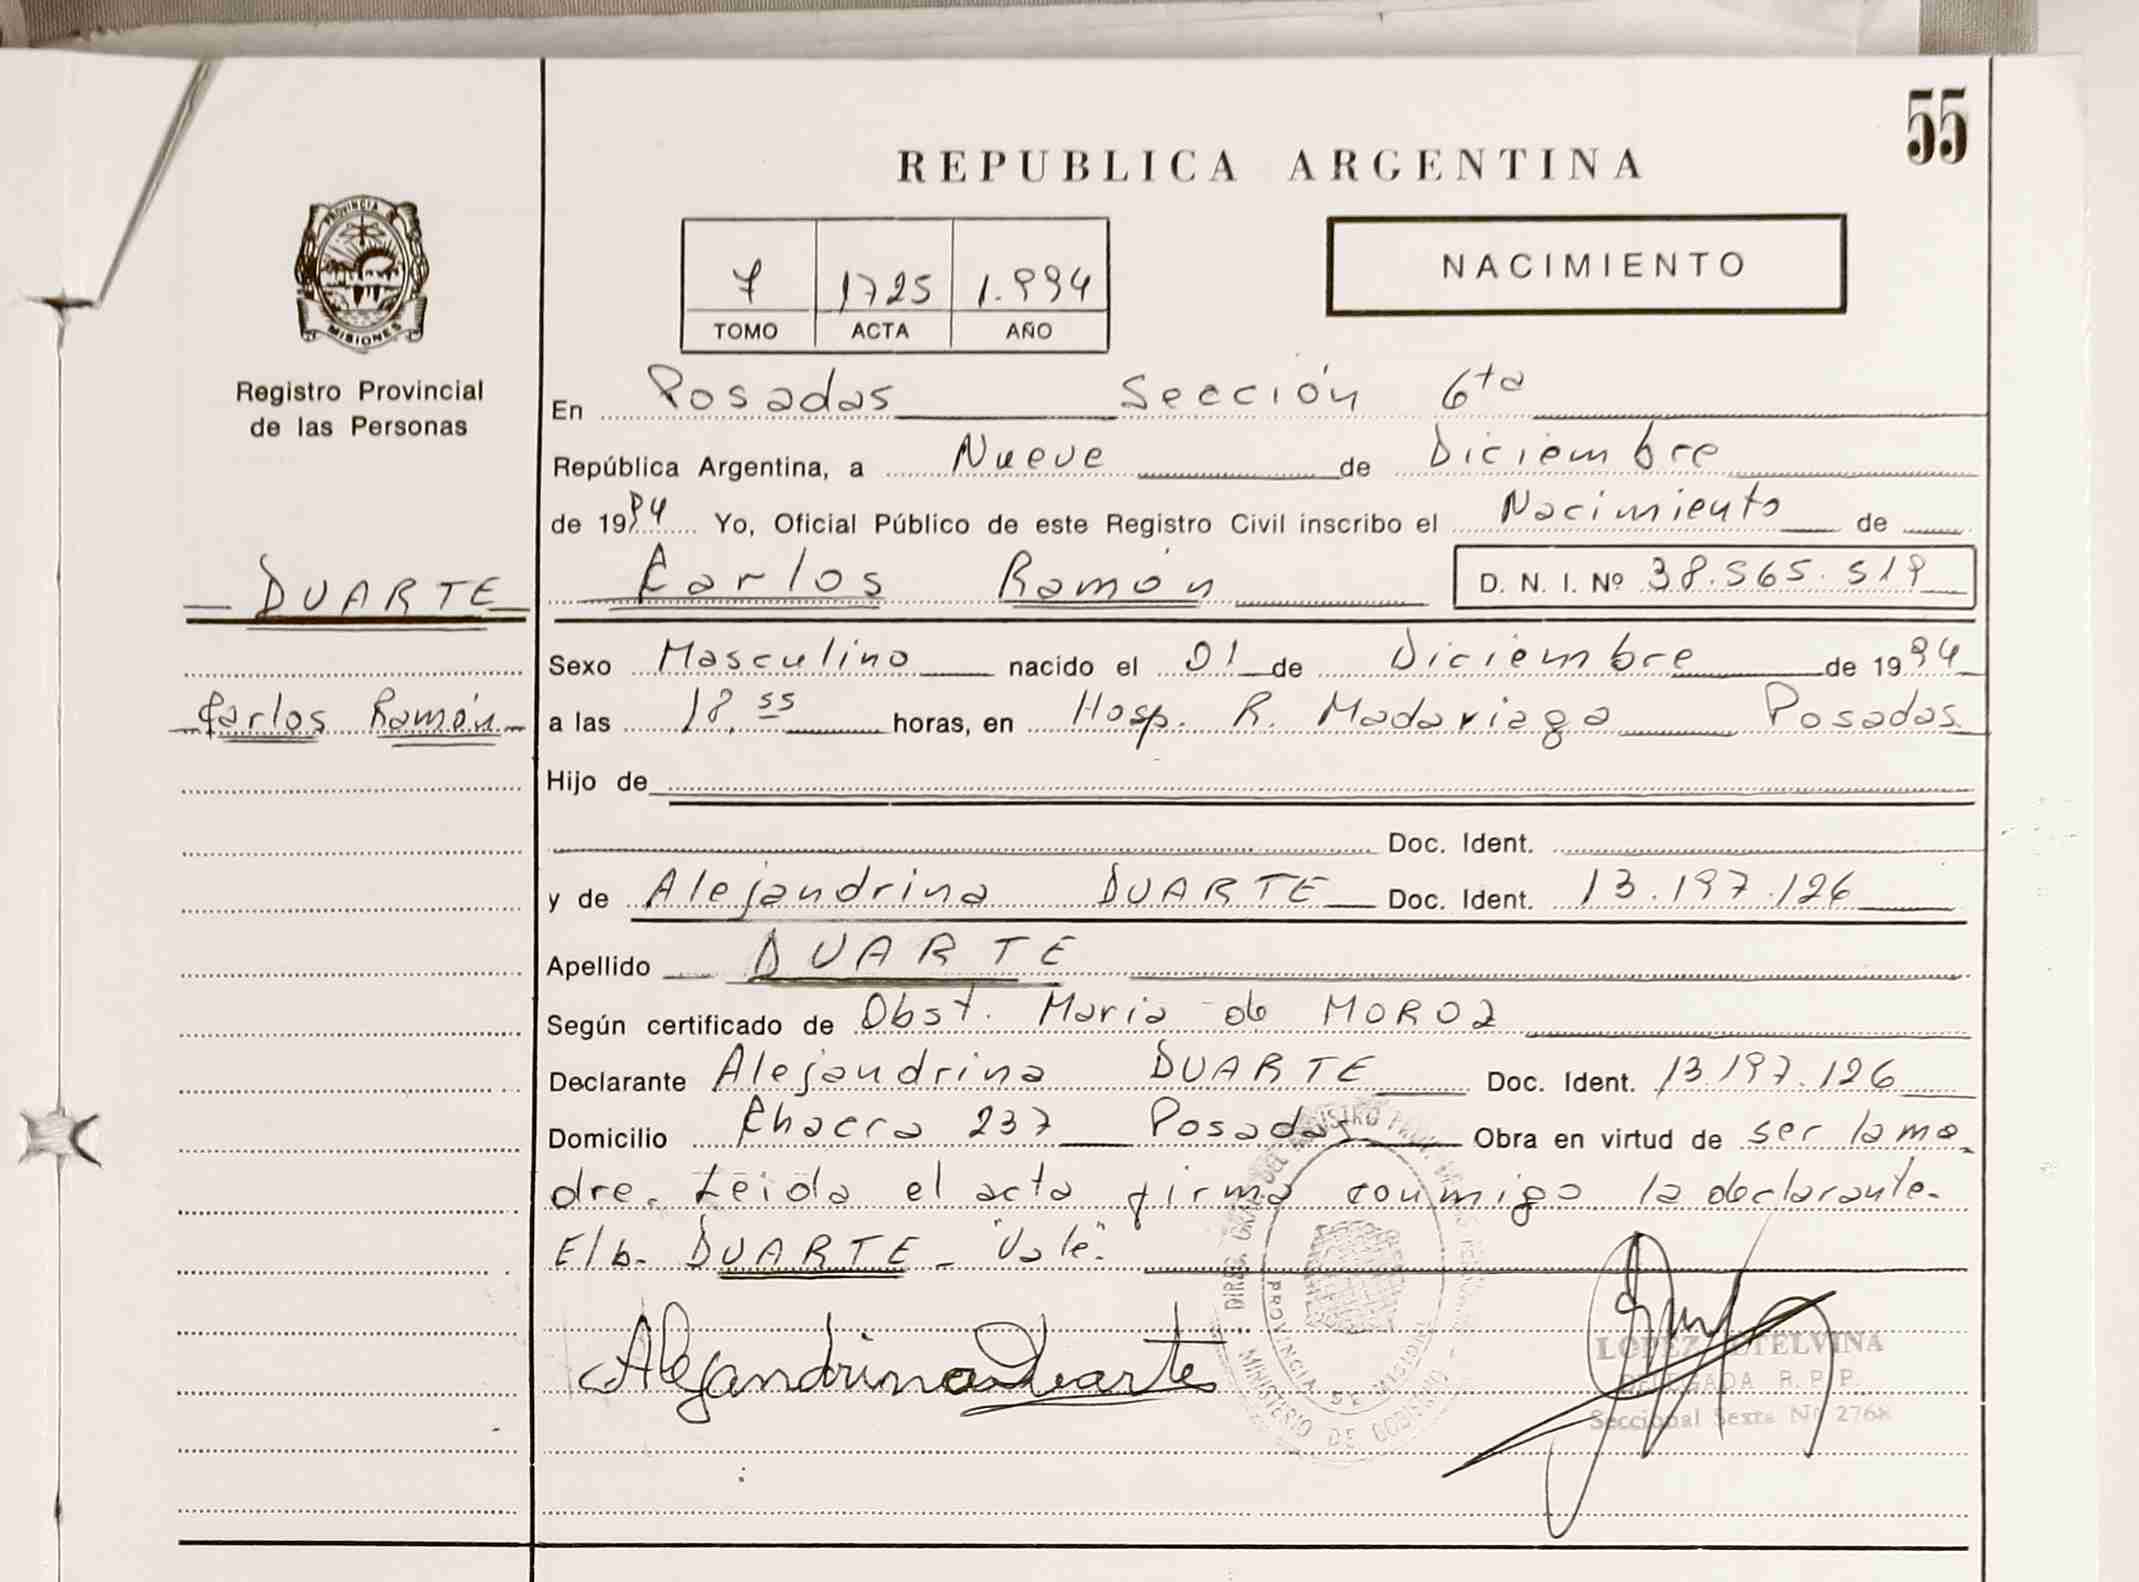 55
REPUBLICA ARGENTINA
PROVINCIA DE
MISIONES
7 1725 1.994
TOMO ACTA AÑO
NACIMIENTO
Registro Provincial
de las Personas
En Posadas Sección 6ta
República Argentina, a Nueve de Diciembre
de 1994 Yo, Oficial Público de este Registro Civil inscribo el Nacimiento de
DUARTE
Carlos Ramón D. N. I. Nº 38.565.519
Sexo Masculino nacido el 01 de Diciembre de 1994
Carlos Ramón
a las 18.55 horas, en Hosp. R. Madariaga Posadas
Hijo de
Doc. Ident.
y de Alejandrina DUARTE Doc. Ident. 13.197.126
Apellido DUARTE
Según certificado de Obst. Maria de MOROZ
Declarante Alejandrina DUARTE Doc. Ident. 13.197.126
Domicilio Chacra 237 Posadas Obra en virtud de ser la ma
dre. Leida el acta firma conmigo la declarante.
E/b. DUARTE - "Vale".
Alejandrina Duarte
DIREC. GRAL. DEL REGISTRO PROV. DE LAS PERSONAS
PROVINCIA DE MISIONES
MINISTERIO DE GOBIERNO
LOPEZ ETELVINA
DELEGADA R. P. P.
Seccional Sexta Nº 2768